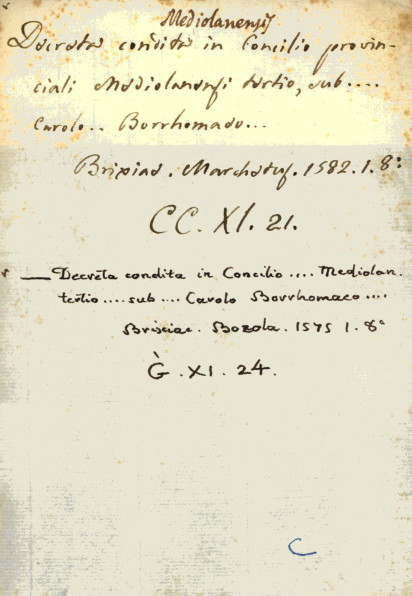 Mediolanensis
Decreta condita in Concilio provin-
ciali Mediolanensi tertio, sub....
Carolo.. Borrhomaeo...
Brixiae. Marchetus. 1582. 1. 8:
CC. XI. 21.
— Decreta condita in Concilio .... Mediolan.
tertio .... sub .... Carolo Borrhomaeo ....
Brixiae. Bozola. 1575 1. 8°
G. XI. 24.
C